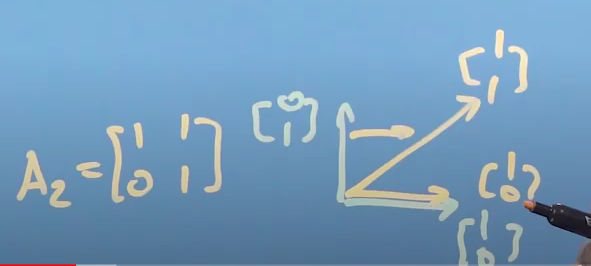 A₂ = [1 1
0 1]
[0
1]
[1
1]
[1
0]
[1
0]